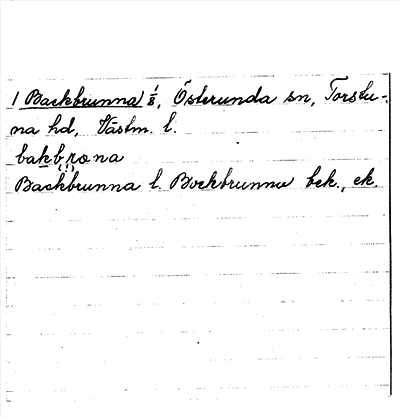 1 Backbrunna 1/8, Österunda sn, Torstu-
na hd, Västm. l.
Backbrunna l. Bockbrunna bek., ek.